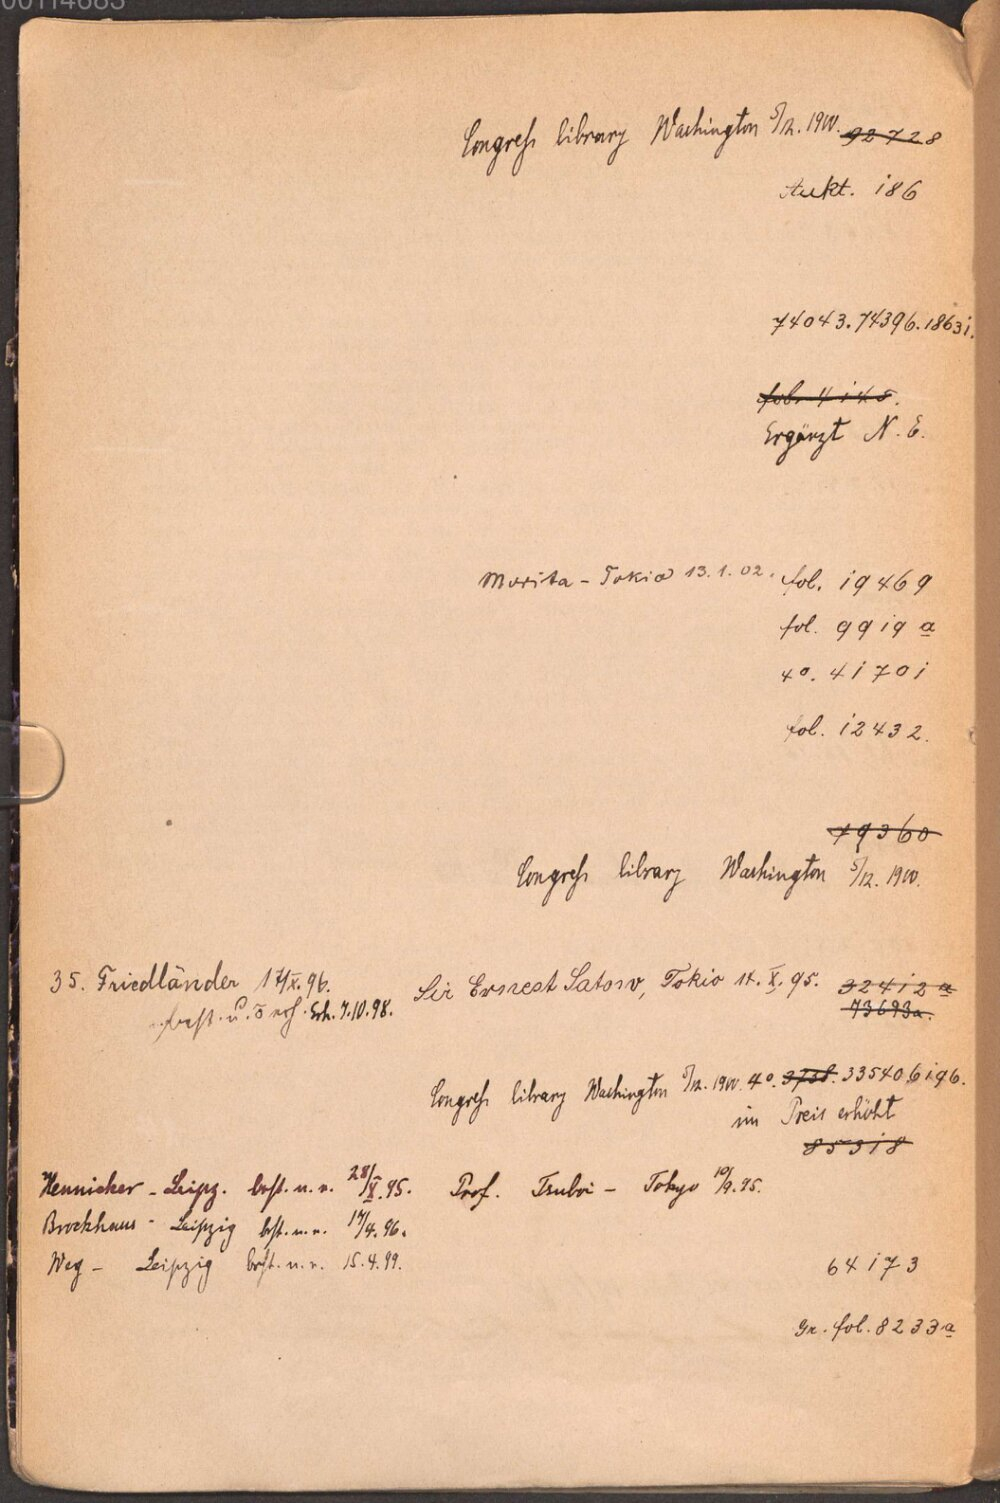 00114683
Congress library Washington 5/12. 1900. 92728
Aukt. 186
74043. 74396. 18631.
fol. 4145.
Ergänzt N. E.
Morita - Tokio 13.1.02. fol. 19469
fol. 9919 a
4°. 41701
fol. 12432.
79360
Congress library Washington 5/12. 1900.
35. Friedländer 17/X. 96. Sir Ernest Satow, Tokio 14. X. 95. 32412 a
best. u. Erh. 7.10.98. 73693a.
Congress library Washington 5/12. 1900. 4°. 3738. 33540. 6196.
im Preis erhöht
85318
Hennicker - Leipz. best. u. v. 28/X. 95. Prof. Tsuboi - Tokyo 10/9. 95.
Brockhaus - Leipzig best. u. v. 17/4. 96.
Weg - Leipzig best. u. v. 15.4.99. 64173
Gr. fol. 8233 a